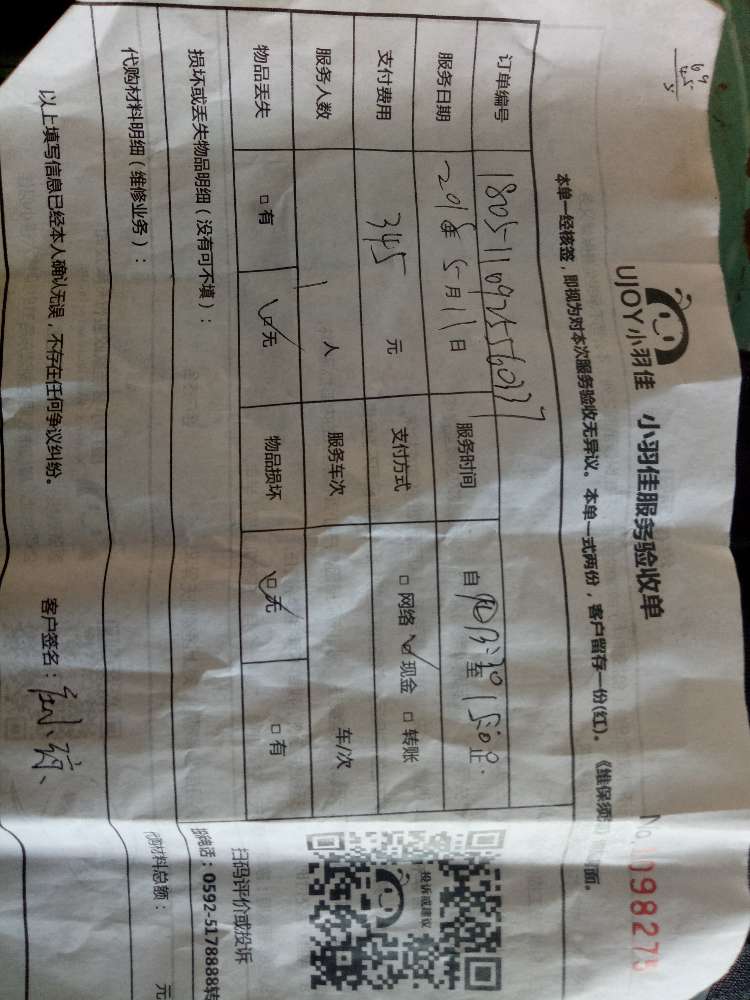 UJOY小羽佳 小羽佳服务验收单
本单一经核签，即视为对本次服务验收无异议。本单一式两份，客户留存一份(红)。
订单编号
服务日期 2018年 5月11日 服务时间 自 至 15:00止
支付费用 345 元 支付方式 □ 网络 ☑ 现金 □ 转账
服务人数 1 人 服务车次 车/次
物品丢失 □ 有 ☑ 无 物品损坏 ☑ 无 □ 有
损坏或丢失物品明细（没有可不填）：
代购材料明细（维修业务）：
代购材料总额： 元
以上填写信息已经本人确认无误，不存在任何争议纠纷。 客户签名：
投诉或建议
扫码评价或投诉
0592-5178888转
69